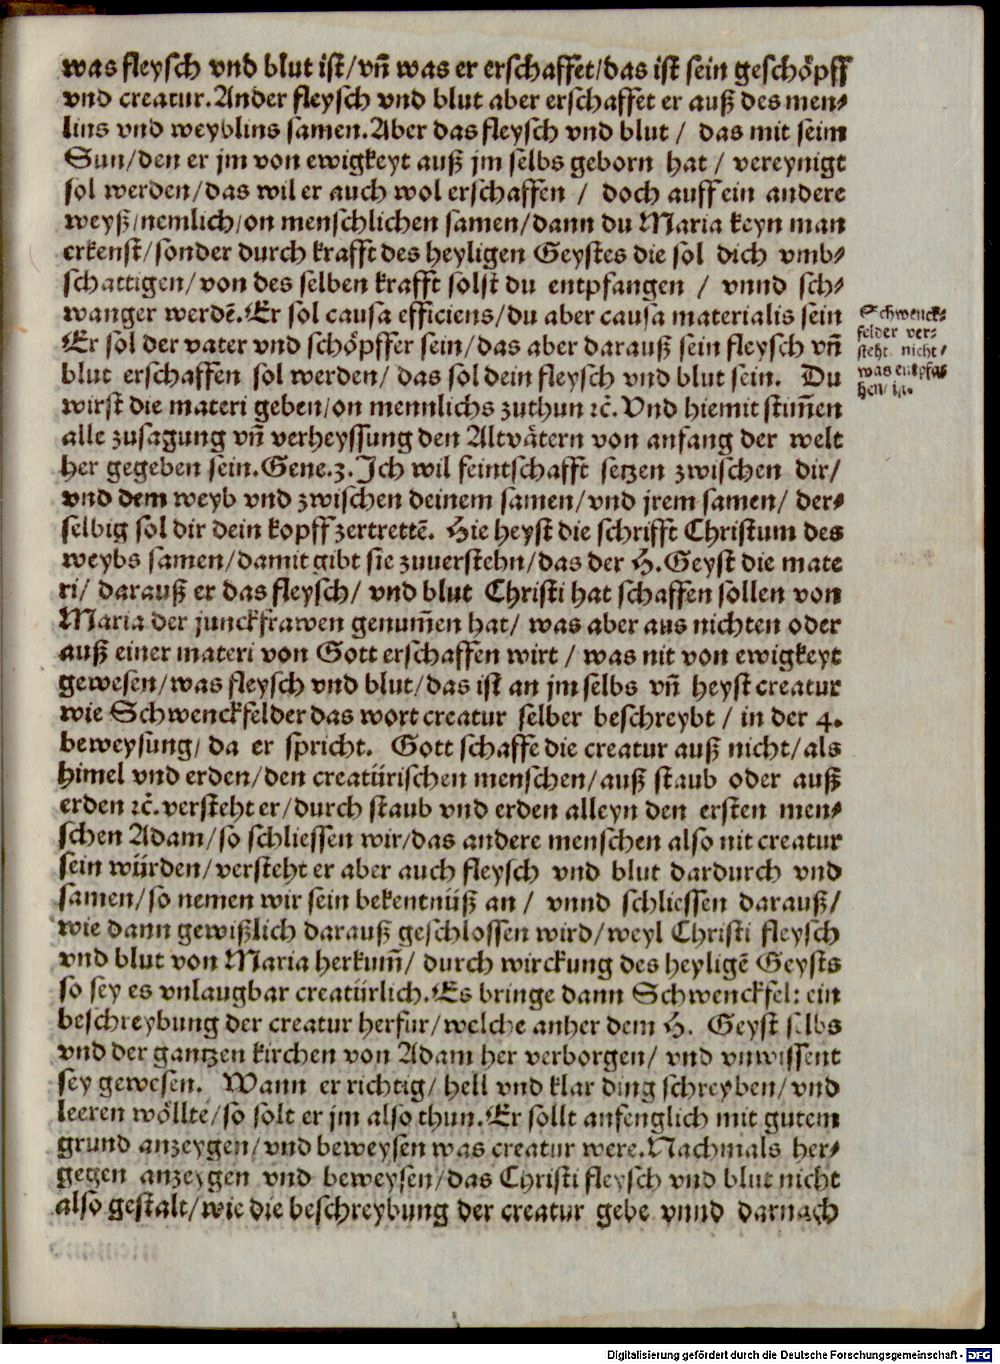 was fleysch vnd blut ist/vñ was er erschaffet/das ist sein geschöpff
vnd creatur. Ander fleysch vnd blut aber erschaffet er auß des men-
lins vnd weyblins samen. Aber das fleysch vnd blut / das mit seim
Sun/den er jm von ewigkeyt auß jm selbs geborn hat / vereynigt
sol werden/das wil er auch wol erschaffen / doch auff ein andere
weyß/nemlich/on menschlichen samen/dann du Maria keyn man
erkenst/sonder durch krafft des heyligen Geystes die sol dich vmb-
schattigen/von des selben krafft solst du entpfangen / vnnd sch-
wanger werdẽ. Er sol causa efficiens/du aber causa materialis sein
Er sol der vater vnd schöpffer sein/das aber darauß sein fleysch vñ
blut erschaffen sol werden/ das sol dein fleysch vnd blut sein. Du
wirst die materi geben/on mennlichs zuthun ꝛc̃. Vnd hiemit stim̃en
alle zusagung vñ verheyssung den Altvätern von anfang der welt
her gegeben sein. Gene.3. Ich wil feintschafft setzen zwischen dir/
vnd dem weyb vnd zwischen deinem samen/vnd jrem samen/ der-
selbig sol dir dein kopff zertrettẽ. Hie heyst die schrifft Christum des
weybs samen/damit gibt sie zuuerstehn/das der H. Geyst die mate
ri/ darauß er das fleysch/ vnd blut Christi hat schaffen sollen von
Maria der junckfrawen genum̃en hat/ was aber aus nichten oder
auß einer materi von Gott erschaffen wirt / was nit von ewigkeyt
gewesen/was fleysch vnd blut/das ist an jm selbs vñ heyst creatur
wie Schwenckfelder das wort creatur selber beschreybt / in der 4.
beweysung/ da er spricht. Gott schaffe die creatur auß nicht/als
himel vnd erden/den creatürischen menschen/auß staub oder auß
erden ꝛc̃. versteht er/durch staub vnd erden alleyn den ersten men-
schen Adam/so schliessen wir/das andere menschen also nit creatur
sein würden/versteht er aber auch fleysch vnd blut dardurch vnd
samen/so nemen wir sein bekentnüß an / vnnd schliessen darauß/
wie dann gewißlich darauß geschlossen wird/weyl Christi fleysch
vnd blut von Maria herkum̃/ durch wirckung des heyligẽ Geysts
so sey es vnlaugbar creatürlich. Es bringe dann Schwenckfel: ein
beschreybung der creatur herfür/welche anher dem H. Geyst selbs
vnd der gantzen kirchen von Adam her verborgen/ vnd vnwissent
sey gewesen. Wann er richtig/ hell vnd klar ding schreyben/vnd
leeren wöllte/so solt er jm also thun. Er sollt anfenglich mit gutem
grund anzeygen/vnd beweysen was creatur were. Nachmals her-
gegen anzeygen vnd beweysen/das Christi fleysch vnd blut nicht
also gestalt/wie die beschreybung der creatur gebe vnnd darnach
Schwenck-
felder ver-
steht nicht/
was entpfa-
hen/ ist.
Digitalisierung gefördert durch die Deutsche Forschungsgemeinschaft - DFG